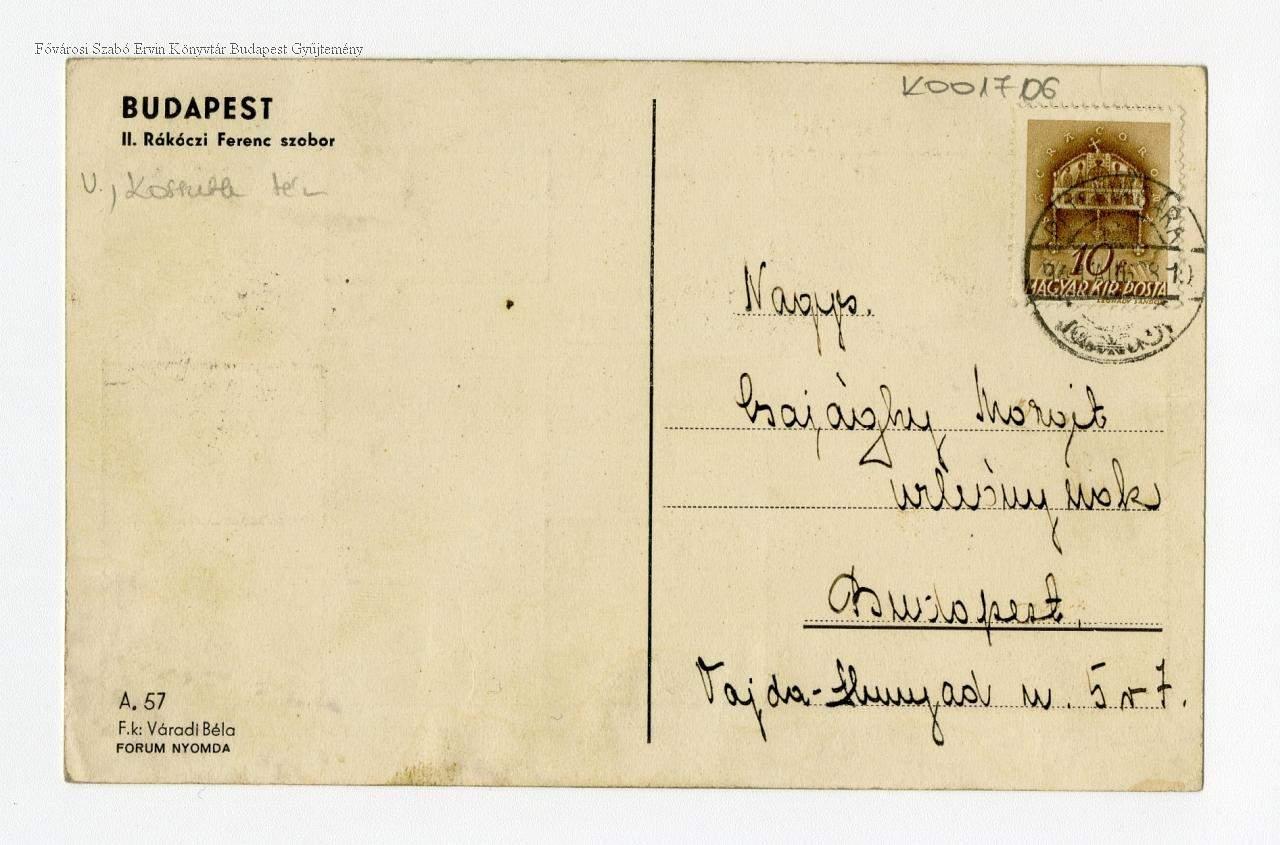 Fővárosi Szabó Ervin Könyvtár Budapest Gyűjtemény
K001706
BUDAPEST
II. Rákóczi Ferenc szobor
V., Kossuth tér
SACRA CORONA
10 f
MAGYAR KIR. POSTA
LÉGRÁDY SÁNDOR
Nagys.
Csajághy Margit
urleány, nak
Budapest.
Vajda-Hunyad u. 5 v 7.
A. 57
F.k: Váradi Béla
FORUM NYOMDA